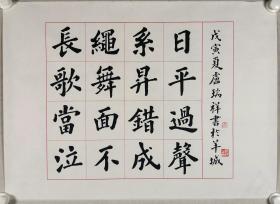 長繩系日
歌舞昇平
當面錯過
泣不成聲
戊寅夏盧瑞祥書於羊城